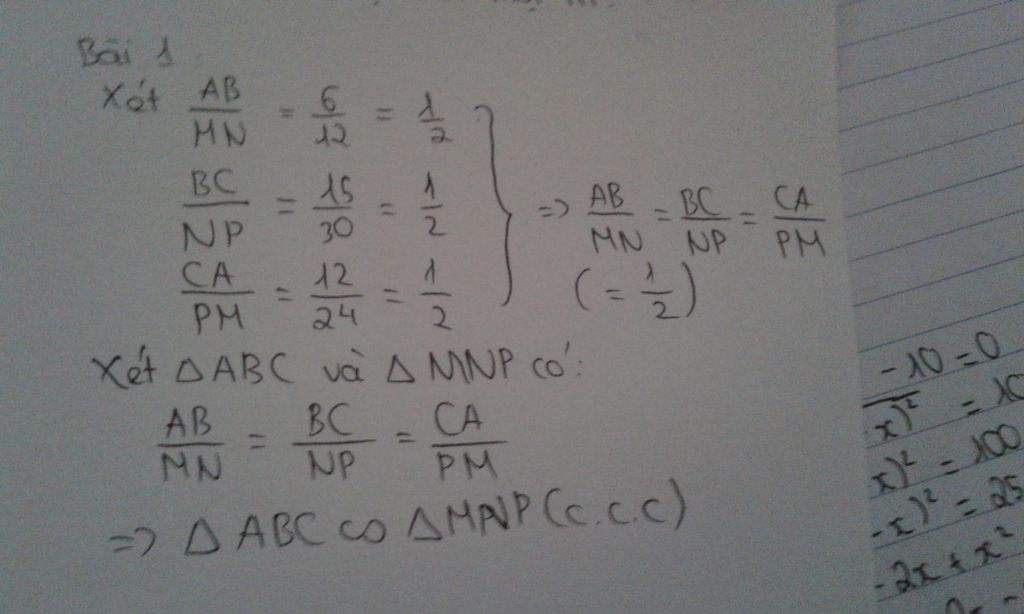 Bài 1
Xét AB/MN = 6/12 = 1/2
BC/NP = 15/30 = 1/2
CA/PM = 12/24 = 1/2
} => AB/MN = BC/NP = CA/PM
(= 1/2)
Xét Δ ABC và Δ MNP có:
AB/MN = BC/NP = CA/PM
=> Δ ABC ∽ Δ MNP (c.c.c)
-10 = 0
x)² = 10
x)² = 100
-x)² = 25
-2x + x²